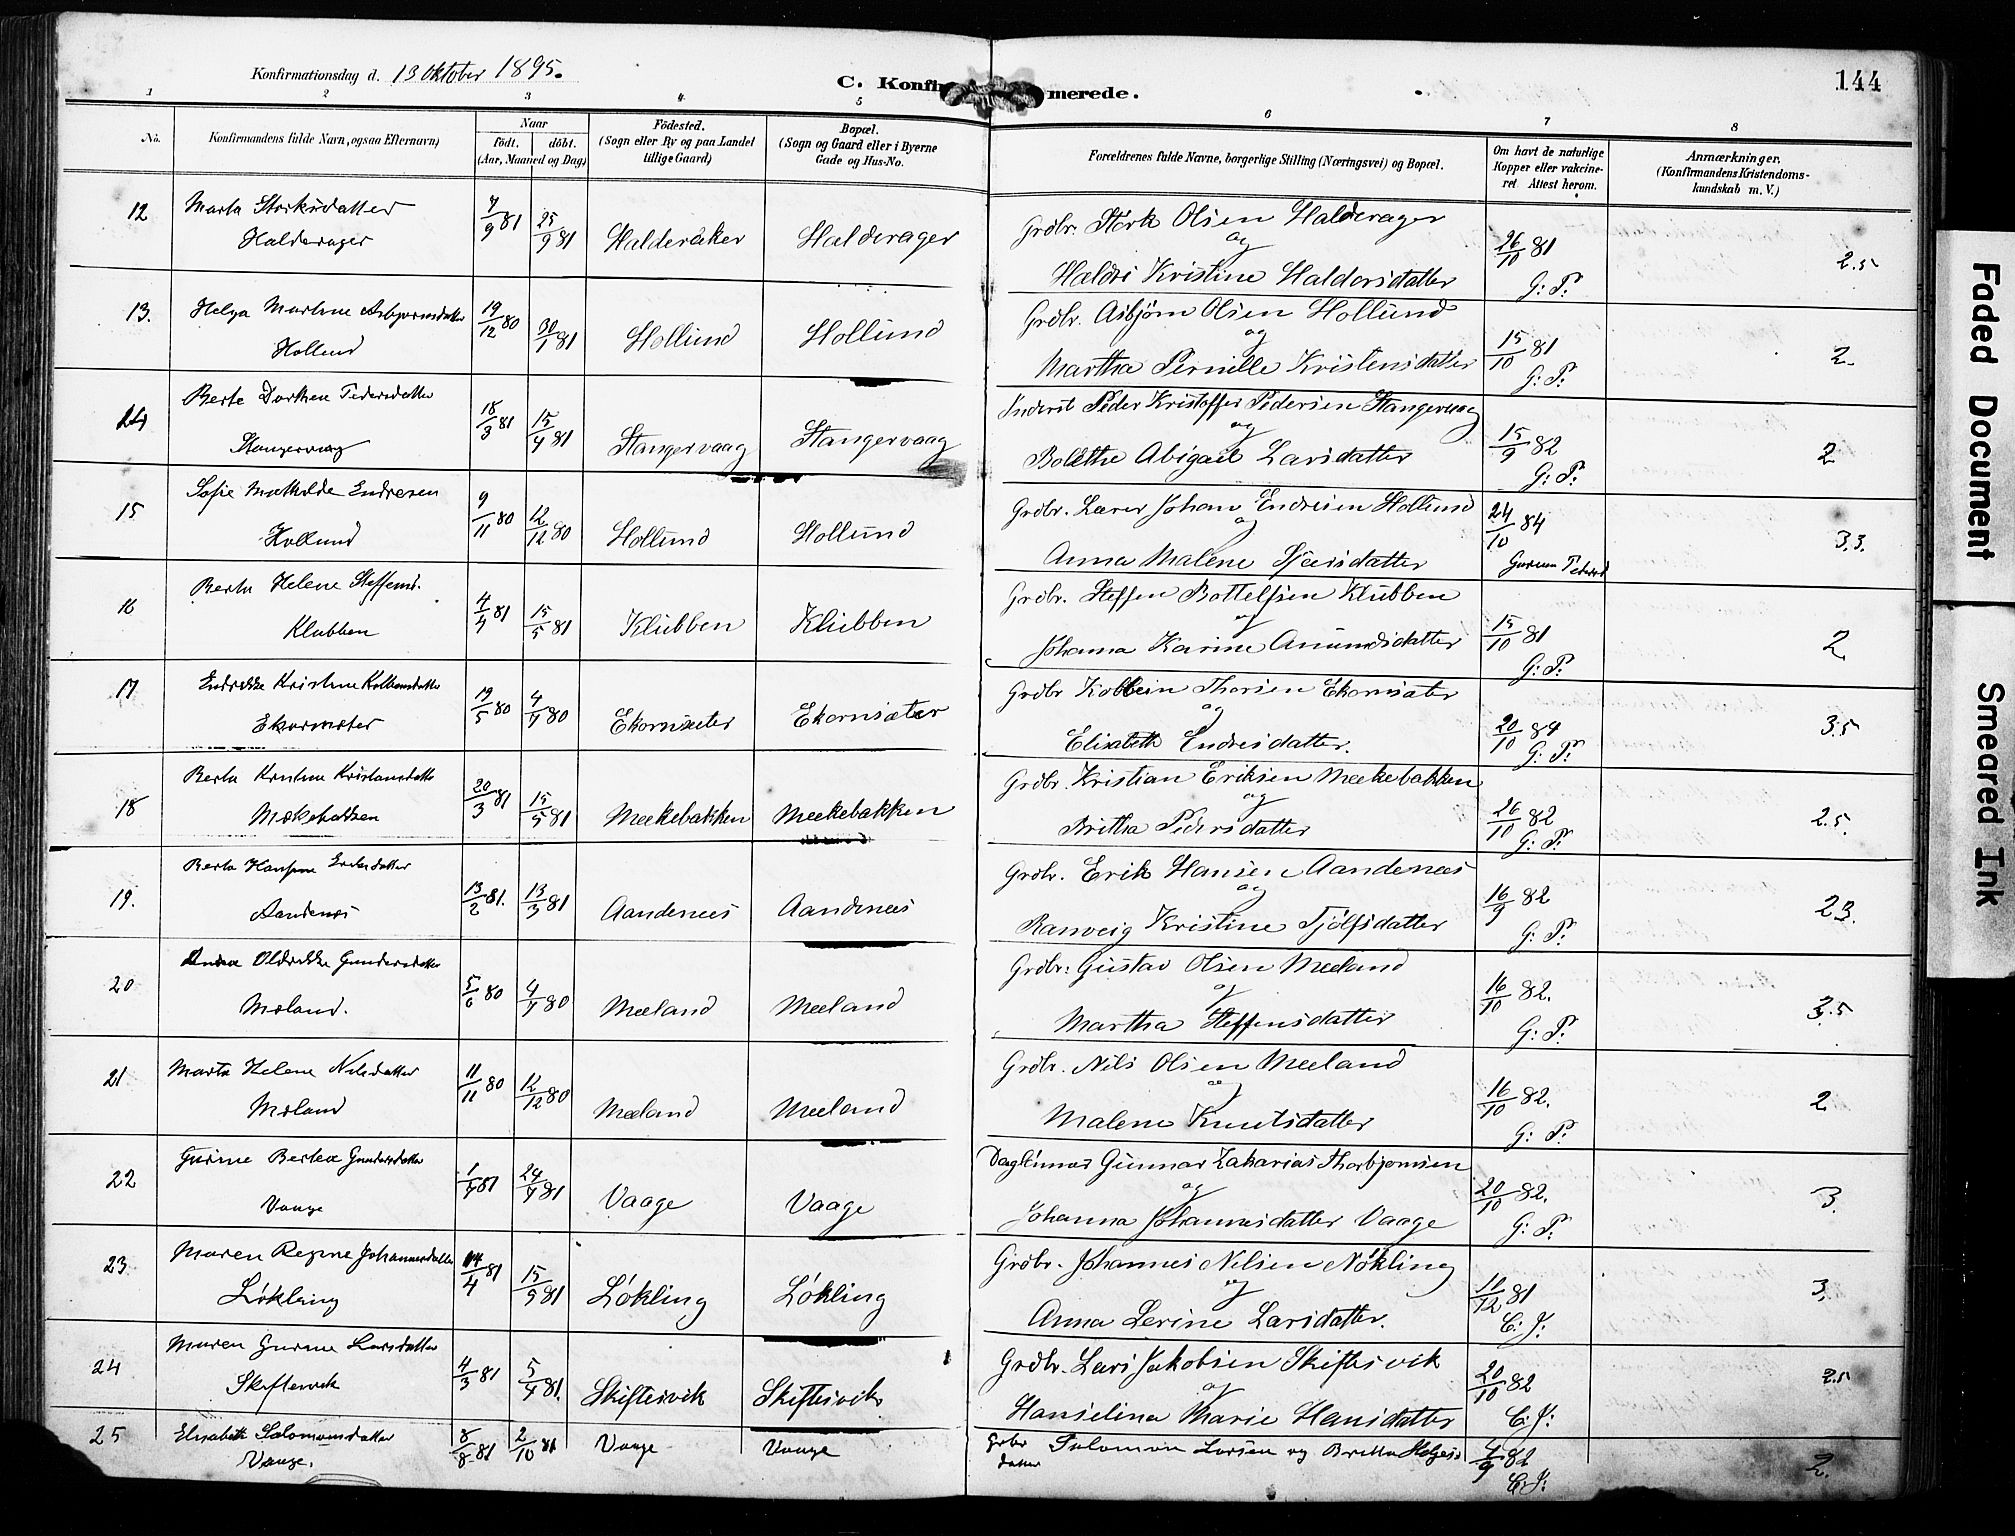 Konfirmationsdag d. 13 Oktober 1895.
C. Konfirmerede.
144
1 2 3 4 5 6 7 8
No.
Konfirmandens fulde Navn, ogsaa Efternavn)
Naar
födt. döbt.
(Aar, Maaned og Dag)
Födested.
(Sogn eller By og paa Landet
tillige Gaard)
Bopæl.
(Sogn og Gaard eller i Byerne
Gade og Hus-No.
Forældrenes fulde Navne, borgerlige Stilling (Næringsvei) og Bopæl.
Om havt de naturlige
Kopper eller vakcine-
ret Attest herom.
Anmærkninger.
(Konfirmandens Kristendoms-
kundskab m. V.)
12 Marta Storksdatter
Halderager
7/9 81 25/9 81 Halderåker Halderager
Grdbr. Stork Olsen Halderager
og
Hældri Kristine Haldorsdatter
26/10 81
G: P:
2.5
13. Helga Martine Asbjørnsdatter
Hollund
19/12 80 30/1 81 Hollund Hollund
Grdbr. Asbjörn Olsen Hollund
og
Martha Pernille Kristensdatter
15/10 81
G: P:
2.
14 Berte Dorthea Pedersdatter
Stangervaag
18/3 81 15/4 81 Stangervaag Stangervaag
Inderst Peder Kristoffer Pedersen Stangervaag
og
Bolethe Abigael Larsdatter
15/9 82
G: P:
2
15 Sofie Mathilde Endresen
Hollund
9/11 80 12/12 80 Hollund Hollund
Grdbr. Lærer Johan Endresen Hollund
og
Anna Malene Sjursdatter
24/10 84
3.3.
16 Berta Helene Steffensd.
Klubben
4/4 81 15/5 81 Klubben Klubben
Grdbr. Steffen Bottelfsen Klubben
og
Johanna Karine Amundsdatter
15/10 81
G: P:
2.
17 Endrikke Kristine Kolbensdatter
Ekornsæter
19/5 80 4/7 80 Ekornsæter Ekornsæter
Grdbr Kolbein Thorsen Ekornsæter
og
Elisabeth Endresdatter.
20/10 84
G: P:
3.5
18 Berta Kristine Kristiansdatter
Mækebakken
20/3 81 15/5 81 Mækebakken Mækebakken
Grdbr. Kristian Eriksen Mækebakken
og
Britha Pedersdatter
26/10 82
G: P:
2.5.
19. Berta Hansine Eriksdatter
Aandenæs
13/2 81. 13/3 81 Aandenæs Aandenæs
Grdbr. Erik Hansen Aandenæs
og
Ranveig Kristine Tjölfsdatter
16/9 82
G: P:
2.3.
20 Oldrikke
Mæland.
5/6 80 4/7 80 Mæland Mæland
Grdbr: Gustav Olsen Mæland
og
Martha Steffensdatter
16/10 82.
G: P:
3.5
21 Marta Helene Nilsdatter
Mæland
11/11 80 12/12 80 Mæland Mæland
Grdbr. Nils Olsen Mæland
og
Malene Knutsdatter
16/10 82.
G: P:
2
22 Gurine Bertea Gundersdatter
Vaage
1/7 81 24/7 81 Vaage Vaage
Daglönner Gunnar Zakarias Thorbjornsen
og
Johanna Johannesdatter Vaage
20/10 82.
G: P:
3.
23 Maren Regine Johannesdatter
Løkling
14/4 81 15/5 81 Løkling Løkling
Grdbr. Johannes Nilsen Nökling
og
Anna Serine Larsdatter.
11/12 81
C: J:
3.
24 Maren Gurine Larsdatter
Skiftesvik
4/3 81 5/4 81. Skiftesvik Skiftesvik
Grdbr. Lars Jakobsen Skiftesvik
og
Hanselina Marie Hansdatter
20/10 82
C: J:
2.5
25 Elisabeth Salomonsdatter
Vaage.
8/8 81 2/10 81 Vaage Vaage
Grdbr Salomon Larsen og Britha Helges-
datter
4/9 82
C: J:
2.
Faded Document
Smeared Ink